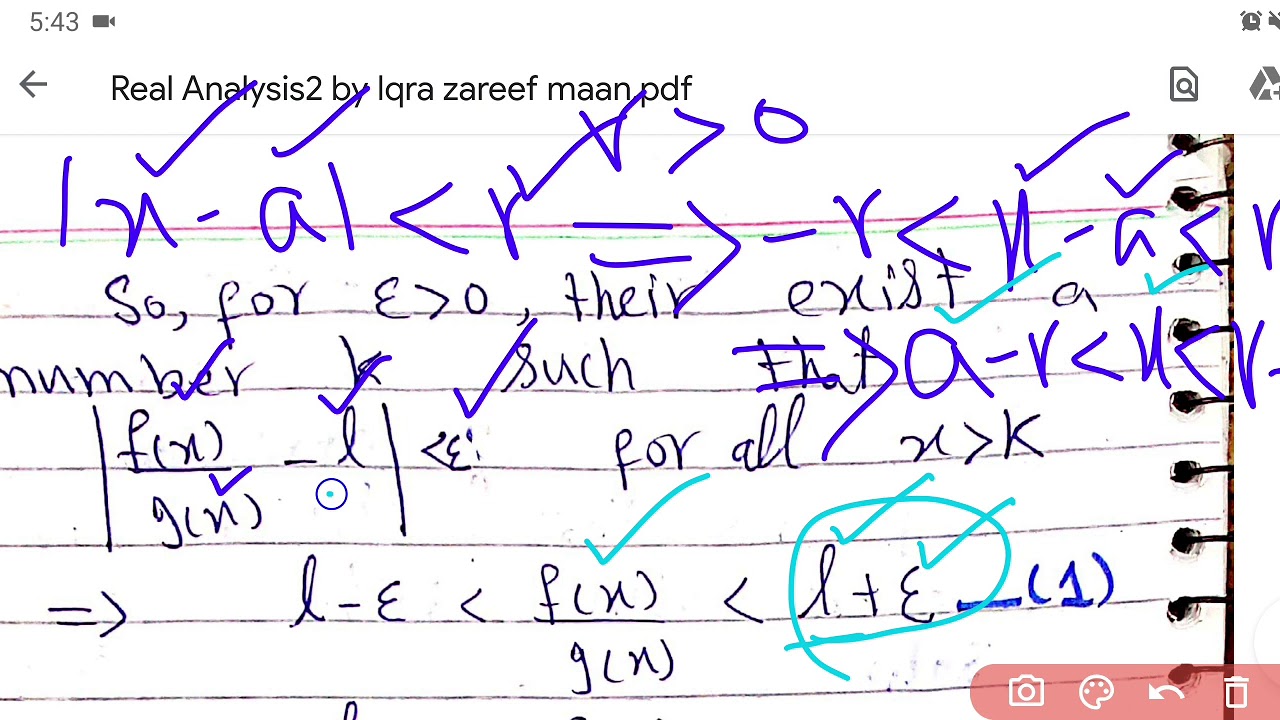 5:43
Real Analysis2 by Iqra zareef maan.pdf
∀ > 0
|x - a| < r ⟹ -r < x - a < r
So, for ε>0, their exist a
number k such that
⟹ a - r < x < r -
|f(x)/g(x) - l| <ε: for all x>K
⟹ l - ε < f(x)/g(x) < l + ε —(1)